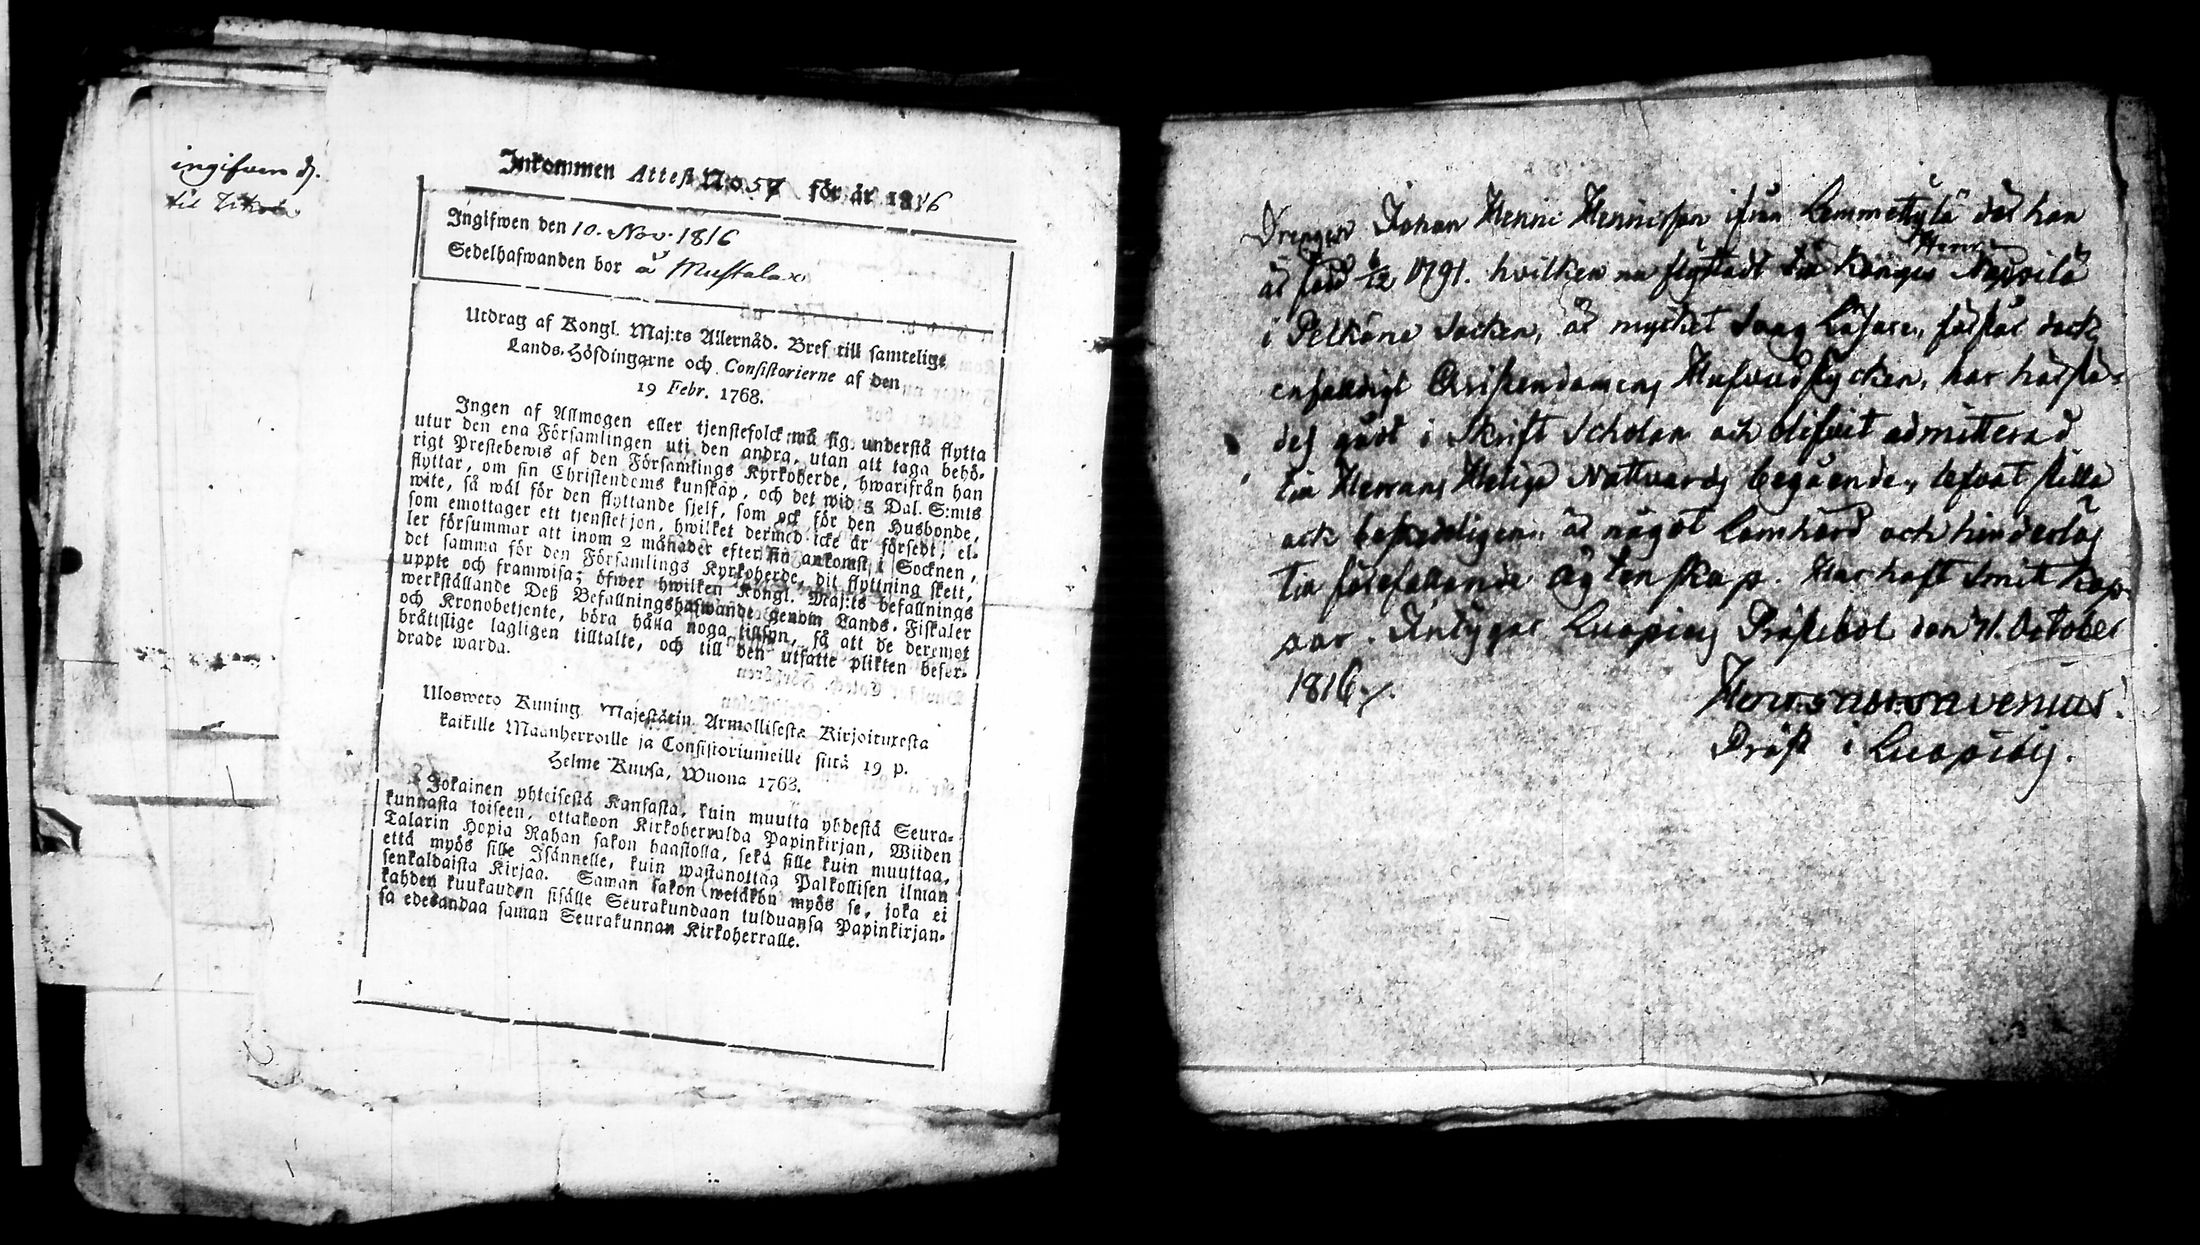 ingifven d.
til
Inkommen Attest No. 57 för år 1816
Ingifwen den 10. Nov. 1816
Sedelhafwanden bor å Mustala
Utdrag af Kongl. Maj:ts Allernåd. Bref till samtelige
Lands-Höfdingarne och Consistorierne af den
19 Febr. 1768.
Ingen af Allmogen eller tjenstefolck må sig understå flytta
utur den ena Församlingen uti den andra, utan att taga behö-
rigt Prestebewis af den Församlings Kyrkoherde, hwarifrån han
flyttar, om sin Christendoms kunskap, och det wid 5 Dal. S:mts
wite, så wäl för den flyttande sjelf, som ock för den Husbonde,
som emottager ett tjenstehjon, hwilket dermed icke är försedt; el-
ler försummar att inom 2 månader efter sin ankomst i Socknen,
det samma för den Församlings Kyrkoherde, dit flyttning skett,
uppte och framwisa; öfwer hwilken Kongl. Maj:ts befallnings
werkställande Deß Befallningshafwande genom Lands-Fiskaler
och Kronobetjente, böra hålla noga tillsyn, så att de deremot
bråttslige lagligen tilltalte, och till den utsatte plikten befor-
drade warda.
Ulosweto Kuning. Majestätin Armollisesta Kirjoituxesta
kaikille Maanherroille ja Consistoriumeille siitä 19 p.
Helme Kuusa, Wuona 1768.
Jokainen yhteisestä Kansasta, kuin muutta yhdestä Seura-
kunnasta toiseen, ottakoon Kirkoherralda Papinkirjan, Wiiden
Talarin Hopia Rahan sakon haastolla, sekä sille kuin muuttaa,
että myös sille Isännelle, kuin wastanottaa Palkollisen ilman
senkaldaista Kirjaa. Saman sakon wetäkön myös se, joka ei
kahden kuukauden sisälle Seurakundaan tulduansa Papinkirjan-
sa edesandaa saman Seurakunnan Kirkoherralle.
Drengen Johan Henric Henricsson ifrån Lemmettylä der han
är född 6/12 1791. hvilken nu flyttadt til Herr
i Pelkäne Socken, är mycket svag Läsare, förstår dock
enfaldigt Christendomens Hufvudstycken, har härstä-
des gådt i Skrift Scholan och blifvit admitterad
til Herrans Heliga Nattvards begående, lefvat stilla
ock beskedeligen, är något Lomhörd och hinderlös
til förefallande Ägtenskap. Har haft Smit kop-
por. Intygar Luopiois Prästebol den 31. October
1816.
Präst i Luopiois.